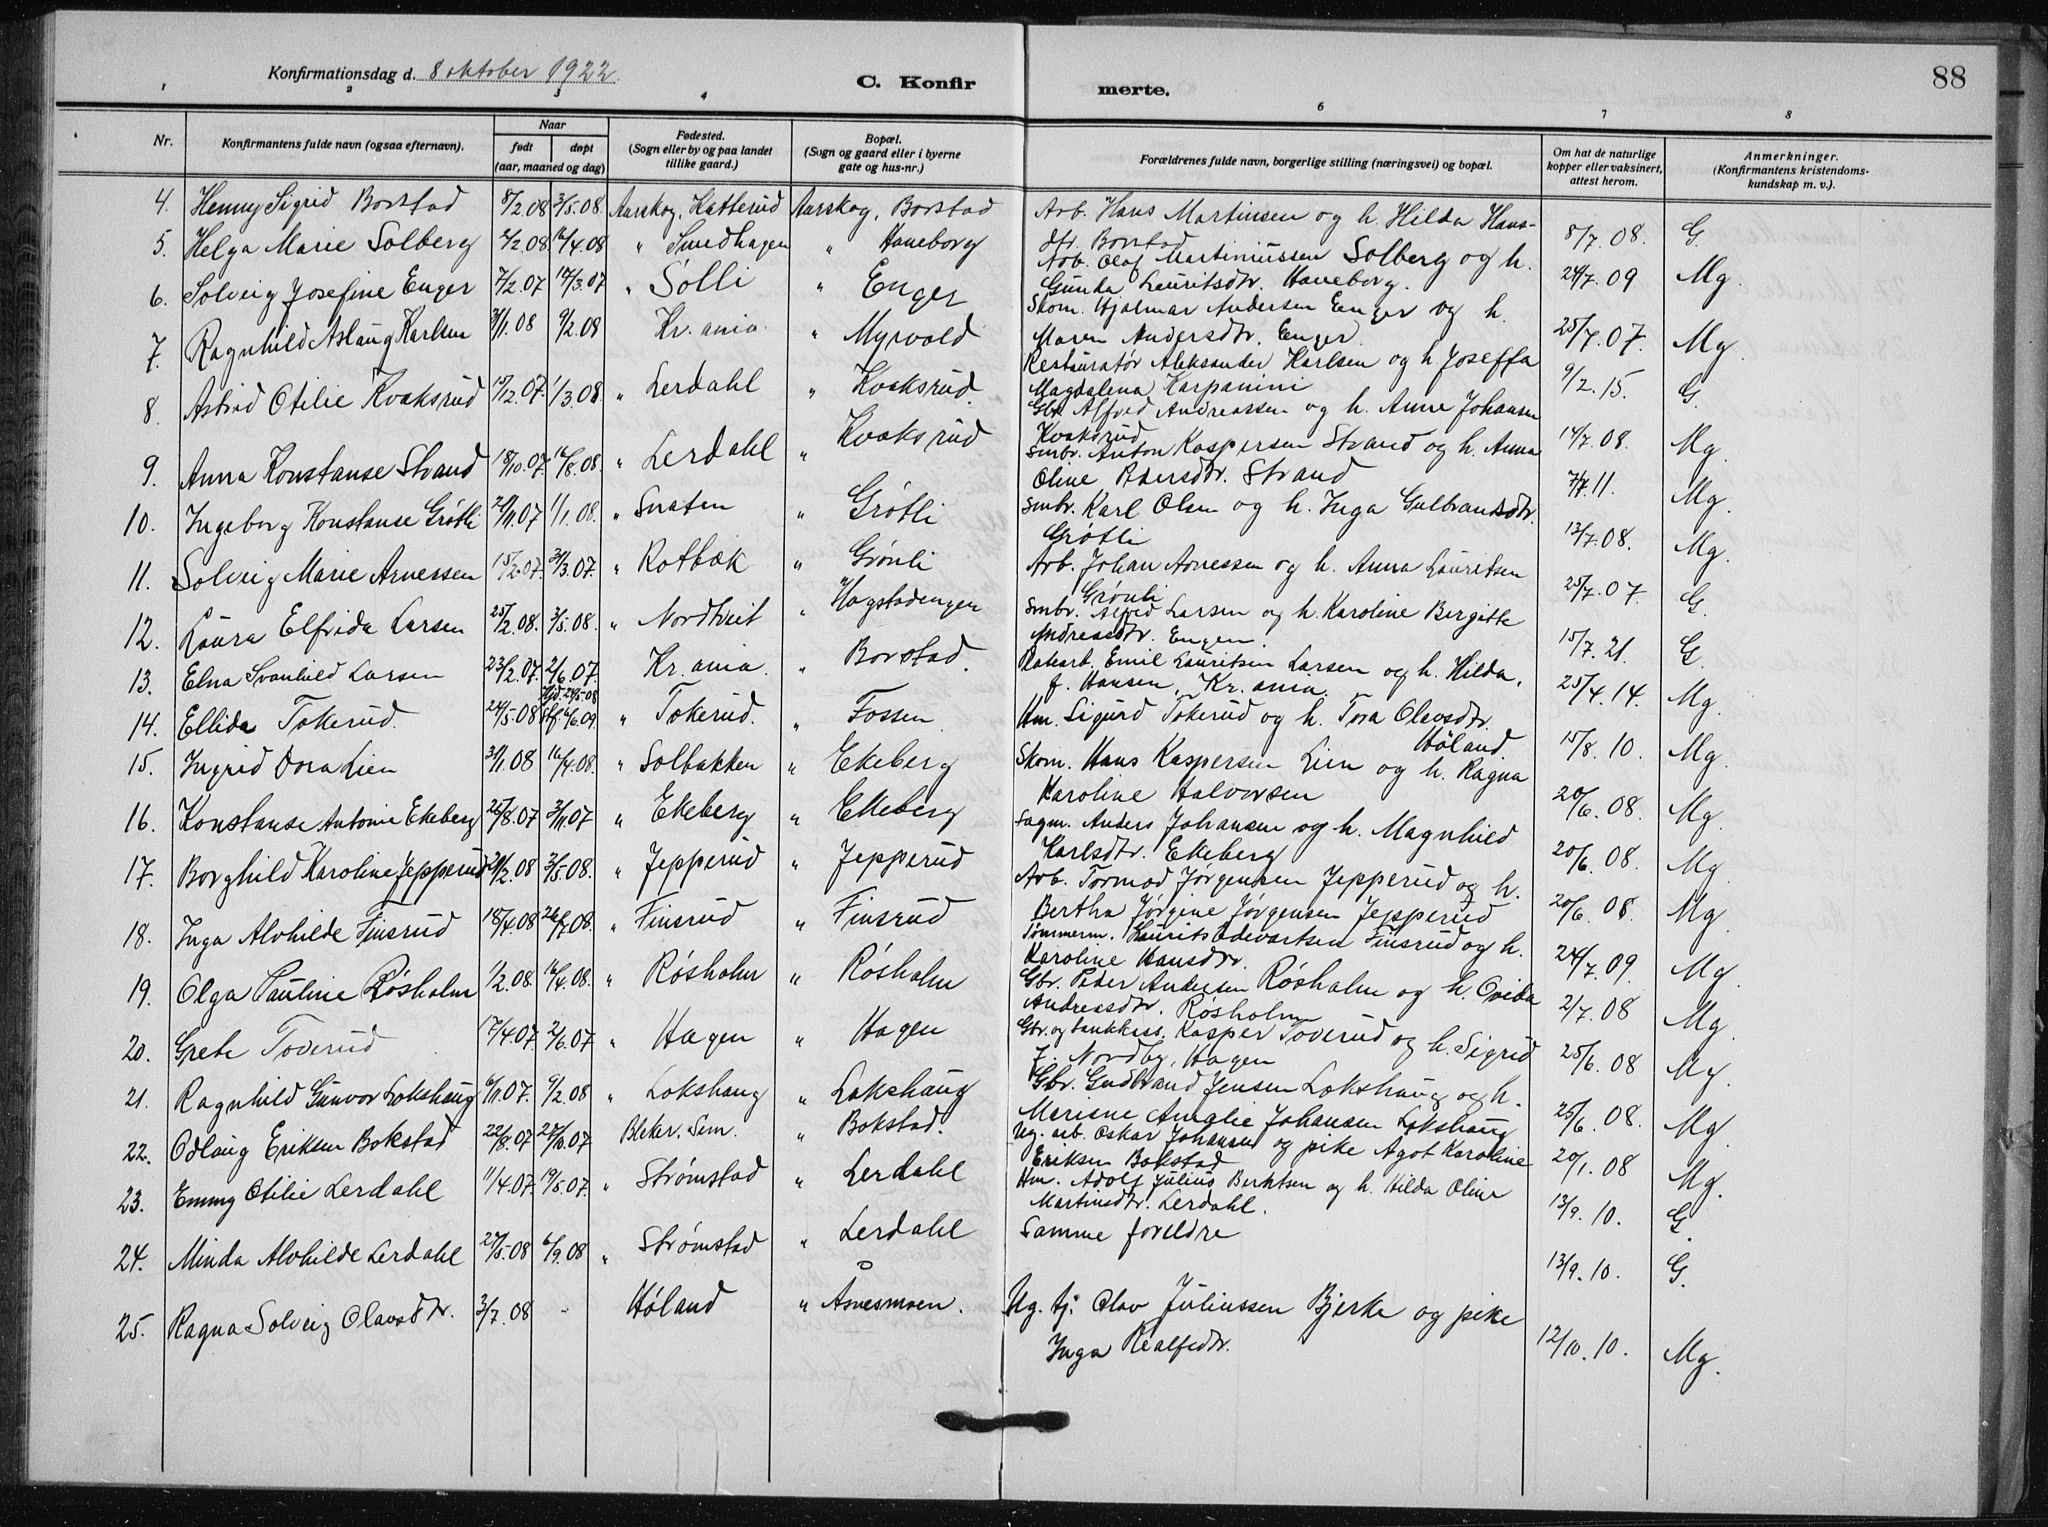 88
Konfirmationsdag d. 8 oktober 1922.
C. Konfirmerte.
1 2 3 4 6 7 8
Nr.
Konfirmantens fulde navn (ogsaa efternavn).
Naar
født døpt
(aar, maaned og dag)
Fødested.
(Sogn eller by og paa landet
tillike gaard.)
Bopæl.
(Sogn og gaard eller i byerne
gate og hus-nr.)
Forældrenes fulde navn, borgerlige stilling (næringsvei) og bopæl.
Om hat de naturlige
kopper eller vaksinert,
attest herom.
Anmerkninger.
(Konfirmantens kristendoms-
kundskap m. v.).
4. Henny Sigrid Borstad 8/2.08 3/5.08. Aarskog, Katterud Aarskog, Borstad Arb. Hans Martinsen og h. Hilda Hans-
dtr. Borstad 8/7.08. G.
5. Helga Marie Solberg 2/2.08 16/4.08 " Smedhagen " Haneborg Arb. Olaf Martiniussen Solberg og h.
Gunda Lauritsdtr. Haneborg. 24/7.09 Mg.
6. Solveig Josefine Enger 7/2.07 17/3.07 " Solli " Enger Skom. Hjalmar Andersen Enger og h.
Maren Andersdtr. Enger. 25/7.07. Mg.
7. Ragnhild Aslaug Karlsen 31/1.08 9/2.08 Kr.ania. " Myrvold Restauratør Aleksander Karlsen og h. Joseffa
Magdalena Karpanini 9/2.15. G.
8. Astrid Otilie Kvaksrud 15/12.07. 1/3.08. " Lerdahl " Kvaksrud. Gbr. Alfred Andreassen og h. Anne Johansen
Kvaksrud 14/7.08. Mg.
9. Anna Konstanse Strand 18/10.07. 16/8.08. " Lerdahl " Kvaksrud Smbr. Anton Kaspersen Strand og h. Anna
Oline Pedersdtr. Strand 7/7.11. Mg.
10. Ingeborg Konstanse Grøtli 24/11.07 1/1.08. " Snaten " Grøtli Smbr. Karl Olsen og h. Inga Gulbrandsdtr.
Grøtli 13/7.08. Mg.
11. Solveig Marie Arnessen 15/2.07. 31/3.07. " Rotbæk " Grønli Arb. Johan Arnessen og h. Anna Lauritsen
Grønli 25/7.07. G.
12. Laura Elfrida Larsen 25/2.08. 3/5.08. " Nordtveit " Hagstadengen Smbr. Alfred Larsen og h. Karoline Bergitte
Andreasdtr. Engen. 15/7.21. G.
13. Elna Svanhild Larsen 23/2.07. 2/6.07. Kr.ania. " Borstad. Emil Lauritsen Larsen og h. Hilda,
f. Hansen, Kr.ania. 25/4.14. Mg.
14. Ellida Tokerud. 24/5.08 Hjd. 24/5-08
Stf. 6/6.09 " Tokerud. " Fossen. Hm. Sigurd Tokerud og h. Tora Olavsdtr.
Høland 15/8.10. Mg.
15. Ingrid Dora Lien 31/1.08 16/4.08. " Solbakken " Ekeberg Skom. Hans Kaspersen Lien og h. Ragna
Karoline Halvorsen 20/6.08. Mg.
16. Konstanse Antonie Ekeberg 25/8.07 3/11.07 " Ekeberg " Ekeberg Sagm. Anders Johansen og h. Magnhild
Karlsdtr. Ekeberg 20/6.08 Mg.
17. Borghild Karoline Jepperud 24/2.08 3/5.08. " Jepperud " Jepperud Arb. Tormod Jørgensen Jepperud og h.
Bertha Jørgine Jørgensen Jepperud 20/6.08. Mg.
18. Inga Alvhilde Finsrud 18/4.08 26/7.08. " Finsrud " Finsrud Tømmerm. Laurits Edvartsen Finsrud og h.
Karoline Hansdtr. 24/7.09 Mg.
19. Olga Pauline Røsholm 1/2.08. 16/4.08. " Røsholm " Røsholm Gbr. Peder Andersen Røsholm og h. Ovida
Andreasdtr. Røsholm 2/7.08 Mg.
20. Grete Toverud 17/4.07. 2/6.07 " Hagen " Hagen Gbr. og bankkass. Kasper Toverud og h. Sigrid
f. Nordby, Hagen 25/6.08 Mg.
21. Ragnhild Gunvor Lokshaug 6/11.07. 9/2.08 " Lokshaug " Lokshaug Gbr. Gudbrand Jensen Lokshaug og h.
Marisne Amalie Johansen Lokshaug 25/6.08. Mg.
22. Odlaug Eriksen Bokstad 22/8.07 20/10.07 Bleker. Sem. " Bokstad. Ug. arb. Oskar Johansen og pike Agot Karoline
Eriksen Bokstad 20/1.08 Mg.
23. Emmy Otilie Lerdahl 11/4.07. 19/5.07. " Strømstad " Lerdahl Hm. Adolf Julius Berntsen og h. Hilda Oline
Martinsdtr. Lerdahl. 13/9.10. G.
24. Minda Alvhilde Lerdahl 27/5.08 6/9.08 " Strømstad " Lerdahl Samme foreldre 13/9.10. G.
25. Ragna Solveig Olavsdtr. 3/7.08 - Høland " Åsnesmoen. Ug. tj. Olav Juliussen Bjerke og pike
Inga Realfsdtr. 12/10.10. Mg.